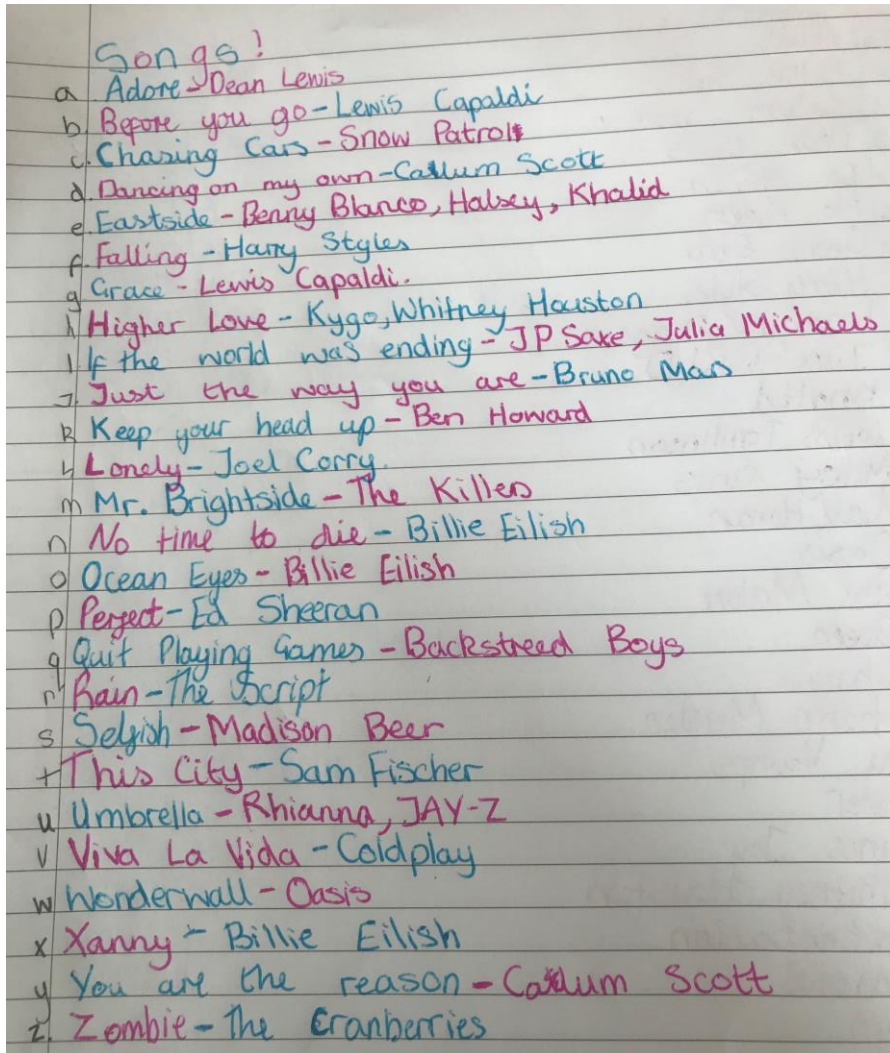 Songs!
a Adore - Dean Lewis
b. Before you go - Lewis Capaldi
c. Chasing Cars - Snow Patrol
d. Dancing on my own - Callum Scott
e. Eastside - Benny Blanco, Halsey, Khalid
f. Falling - Harry Styles
g Grace - Lewis Capaldi.
h Higher Love - Kygo, Whitney Houston
I If the world was ending - JP Saxe, Julia Michaels
J. Just the way you are - Bruno Mars
k Keep your head up - Ben Howard
L Lonely - Joel Corry.
m Mr. Brightside - The Killers
n No time to die - Billie Eilish
o Ocean Eyes - Billie Eilish
p Perfect - Ed Sheeran
q Quit Playing Games - Backstreed Boys
r Rain - The Script
s Selfish - Madison Beer
t This City - Sam Fischer
u Umbrella - Rhianna, JAY-Z
v Viva La Vida - Coldplay
w Wonderwall - Oasis
x Xanny - Billie Eilish
y You are the reason - Callum Scott
z. Zombie - The Cranberries